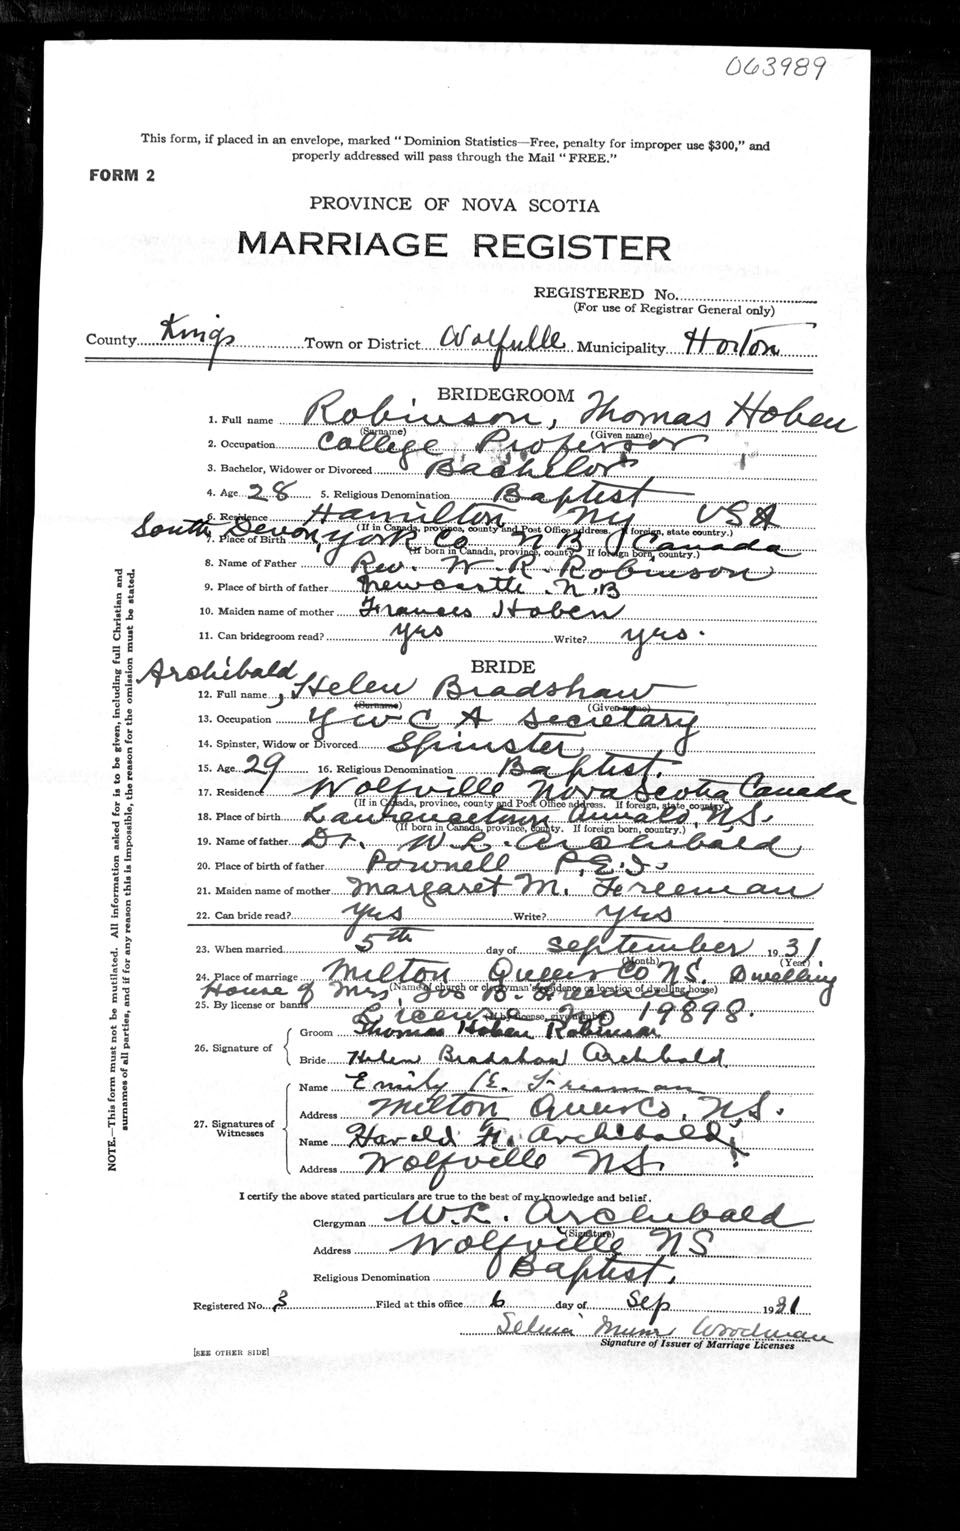 063989
This form, if placed in an envelope, marked "Dominion Statistics—Free, penalty for improper use $300," and
properly addressed will pass through the Mail "FREE."
FORM 2
PROVINCE OF NOVA SCOTIA
MARRIAGE REGISTER
REGISTERED No.
(For use of Registrar General only)
County Kings Town or District Wolfville Municipality Horton
BRIDEGROOM
1. Full name Robinson, Thomas Hoben
(Surname) (Given name)
2. Occupation College Professor
3. Bachelor, Widower or Divorced Bachelor
4. Age 28 5. Religious Denomination Baptist
6. Residence Hamilton NY USA
(If in Canada, province, county and Post Office address. If foreign, state country.)
7. Place of Birth South Devon, York Co NB Canada
(If born in Canada, province, county. If foreign born, country.)
8. Name of Father Rev. W. R. Robinson
9. Place of birth of father Newcastle N.B
10. Maiden name of mother Frances Hoben
11. Can bridegroom read? yes Write? yes.
BRIDE
12. Full name Archibald, Helen Bradshaw
(Surname) (Given name)
13. Occupation Y W C A Secretary
14. Spinster, Widow or Divorced Spinster
15. Age 29 16. Religious Denomination Baptist.
17. Residence Wolfville Nova Scotia Canada
(If in Canada, province, county and Post Office address. If foreign, state country.)
18. Place of birth Lawrencetown Annap, N.S.
(If born in Canada, province, county. If foreign born, country.)
19. Name of father Dr. W. L. Archibald
20. Place of birth of father Pownell P.E.I.
21. Maiden name of mother Margaret M. Freeman
22. Can bride read? yes Write? yes
23. When married 5th day of September 1931
(Month) (Year)
24. Place of marriage Milton Queens Co N.S. Dwelling
(Name of church or clergyman's residence or location of dwelling house)
House of Mrs Jos B. Freeman
25. By license or banns License No 19898.
(If by license, give number.)
26. Signature of
Groom Thomas Hoben Robinson
Bride Helen Bradshaw Archibald
27. Signatures of Witnesses
Name Emily E. Freeman
Address Milton Queens Co, N.S.
Name Harold F. Archibald
Address Wolfville NS.
I certify the above stated particulars are true to the best of my knowledge and belief.
Clergyman W. L. Archibald
(Signature)
Address Wolfville NS
Religious Denomination Baptist.
Registered No. 3 Filed at this office 6 day of Sep 1931
Woodman
Signature of Issuer of Marriage Licenses
[SEE OTHER SIDE]
NOTE.—This form must not be mutilated. All information asked for is to be given, including full Christian and
surnames of all parties, and if for any reason this is impossible, the reason for the omission must be stated.